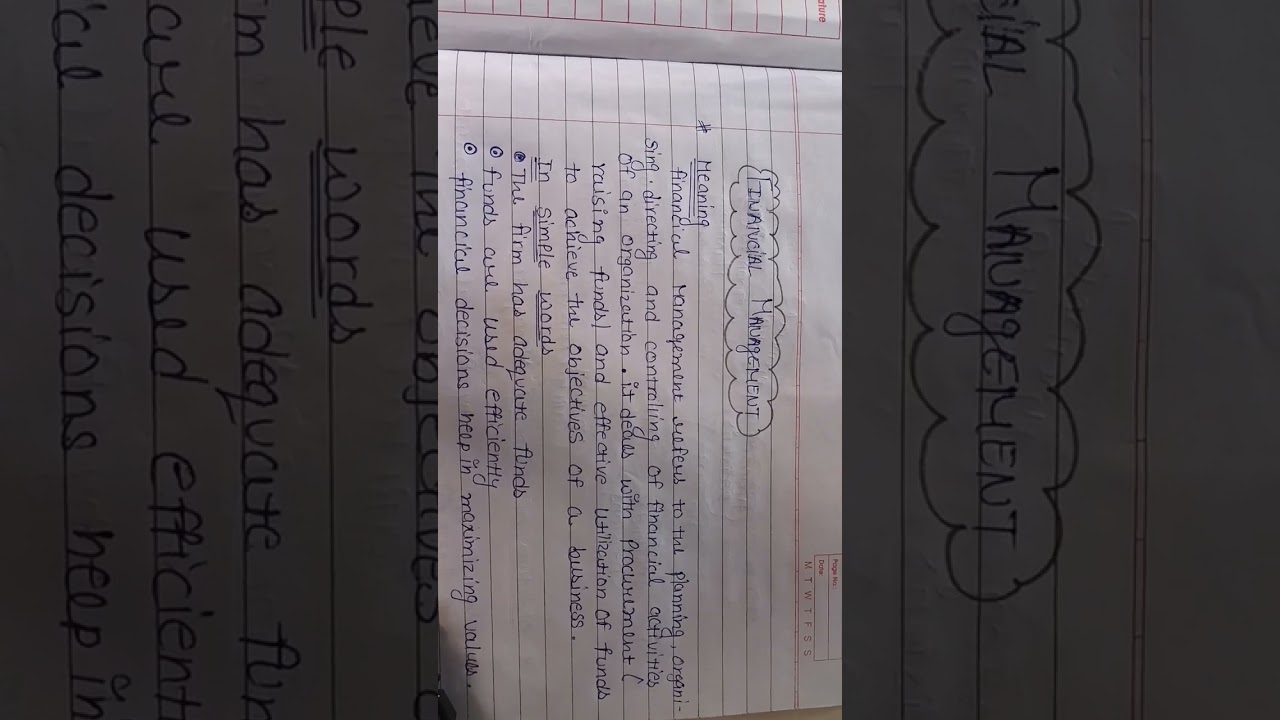 ature
Page No.:
Date
M T W T F S S
FINANCIAL MANAGEMENT
# Meaning
financial Management refers to the planning, organi-
sing, directing and controling of financial activities
of an organization. it deals with Procurement (
raising funds) and effective utilization of funds
to achieve the objectives of a business.
In simple words
The firm has adequate funds
funds are used efficiently
financial decisions help in maximizing values.